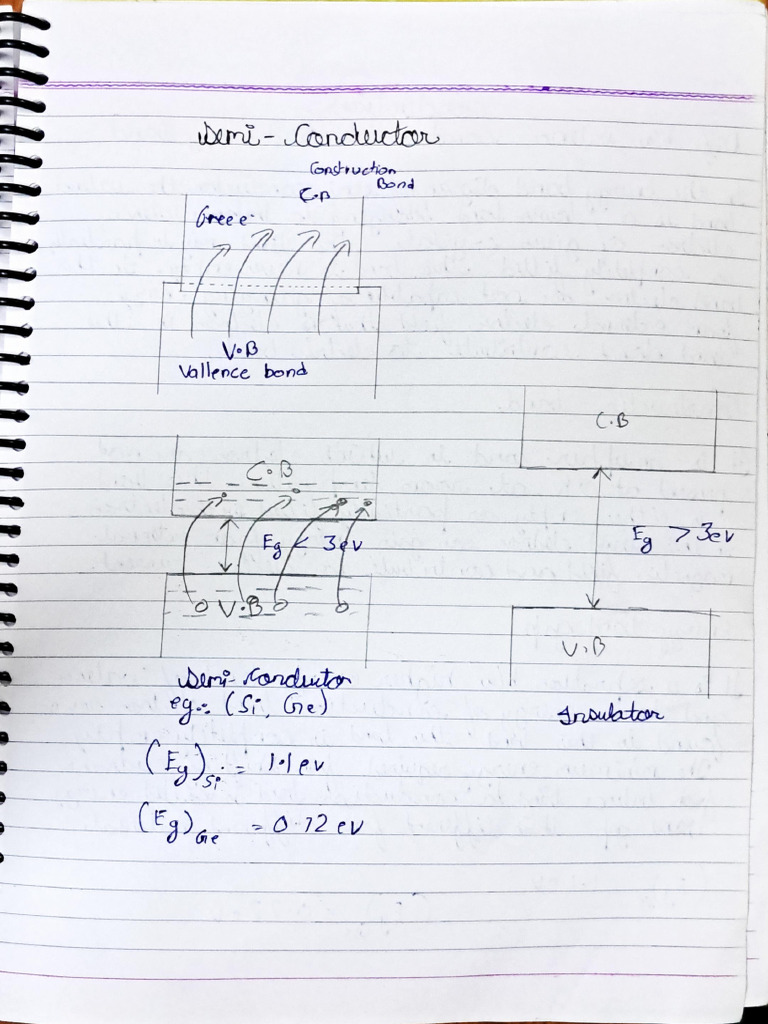 Semi-Conductor
Construction
Bond
C.B
free e-
V.B
Vallence bond
C.B
C.B
Eg < 3ev
Eg > 3ev
V.B
V.B
Semi-Conductor
eg:- (Si, Ge)
Insulator
(Eg)Si = 1.1 ev
(Eg)Ge = 0.72 ev